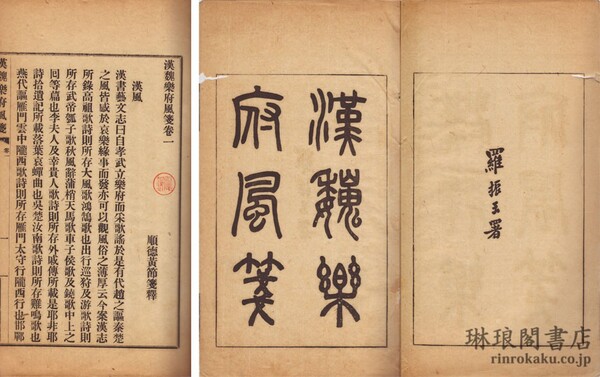 漢魏樂府風箋卷一
漢風
順德黃節箋釋
漢書藝文志曰自孝武立樂府而采歌謠於是有代趙之謳秦楚
之風皆感於哀樂緣事而發亦可以觀風俗之薄厚云今案漢志
所錄高祖歌詩則所存大風歌鴻鵠歌也出行巡狩及游歌詩則
所存武帝瓠子歌秋風辭蒲梢天馬歌車子侯歌及鐃歌中上之
回等篇也李夫人及幸貴人歌詩則所存外戚傳所載是耶非耶
詩拾遺記所載落葉哀蟬曲也吳楚汝南歌詩則所存雞鳴歌也
燕代謳雁門雲中隴西歌詩則所存雁門太守行隴西行也邯鄲
漢魏樂府風箋
漢魏樂
府風箋
羅振玉署
琳琅閣書店
rinrokaku.co.jp